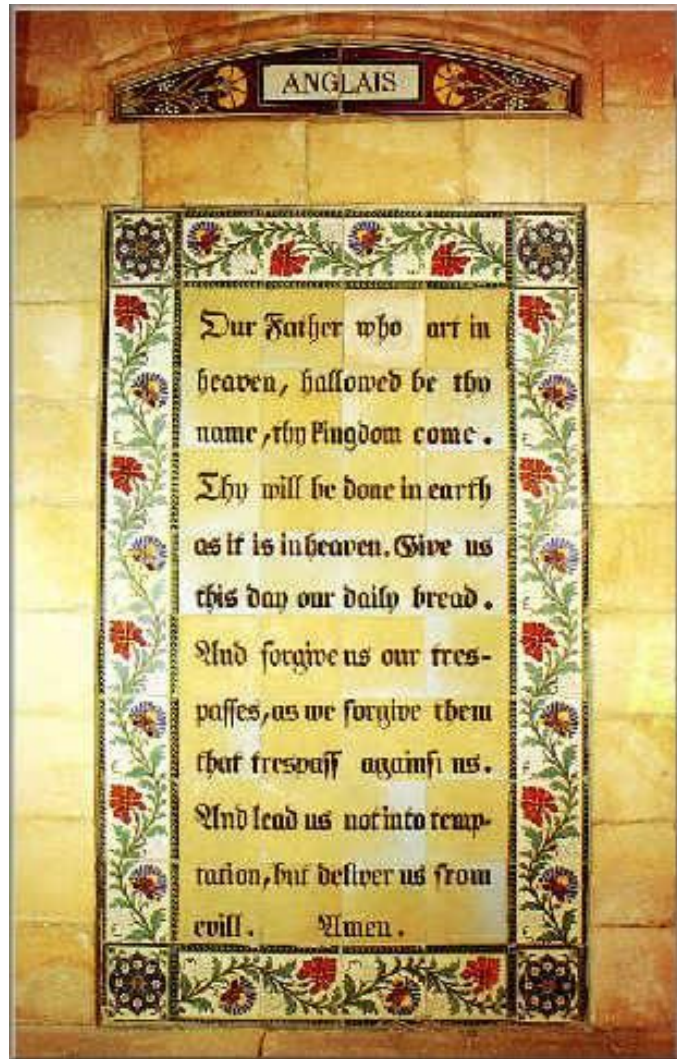 ANGLAIS
Our Father who art in
heaven, hallowed be thy
name, thy Kingdom come.
Thy will be done in earth
as it is in heaven. Give us
this day our daily bread.
And forgive us our tres-
passes, as we forgive them
that trespass against us.
And lead us not into temp-
tation, but deliver us from
evill. Amen.